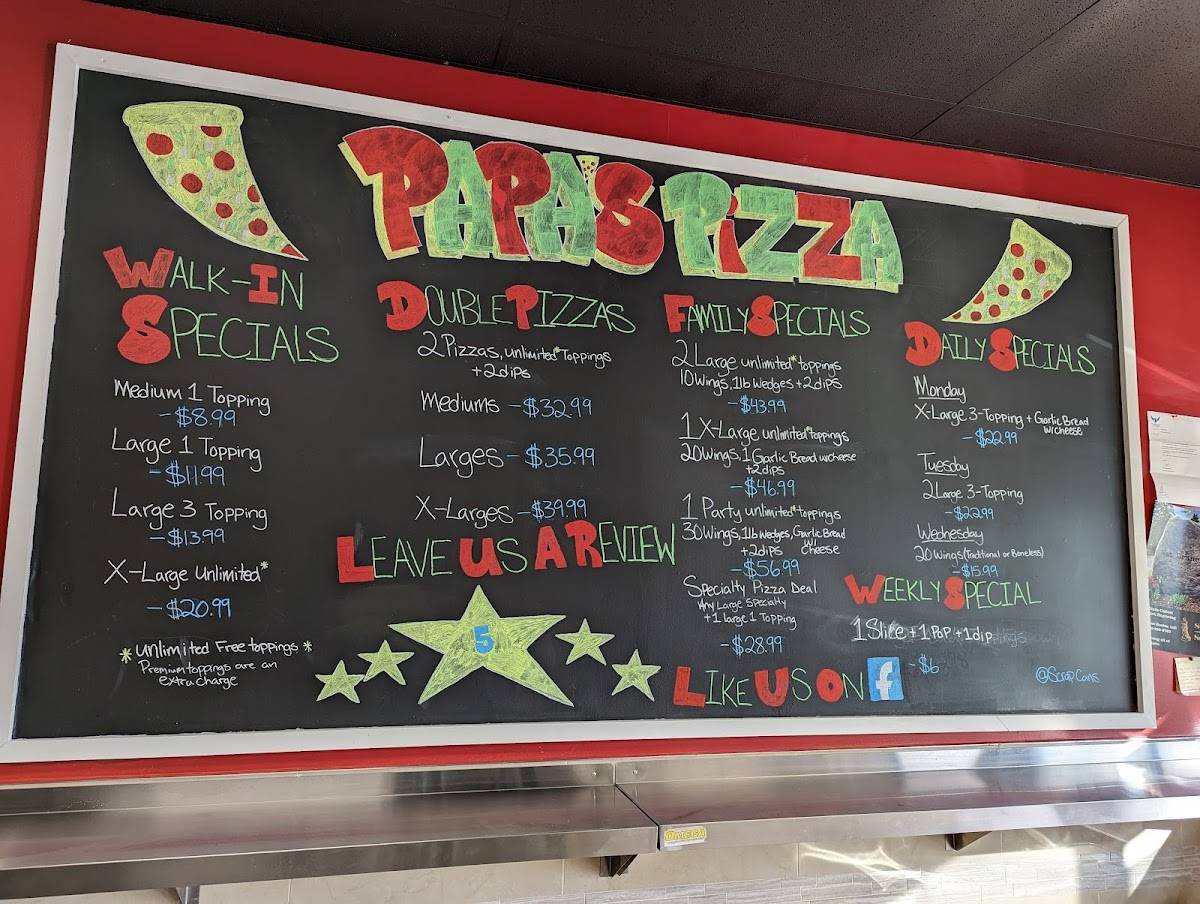 PAPA'S PIZZA
WALK-IN
SPECIALS
Medium 1 Topping
-$8.99
Large 1 Topping
-$11.99
Large 3 Topping
-$13.99
X-Large Unlimited*
-$20.99
*unlimited Free toppings*
Premium toppings are an
extra charge
DOUBLE PIZZAS
2 Pizzas, unlimited*Toppings
+2dips
Mediums -$32.99
Larges -$35.99
X-Larges -$39.99
LEAVE US A REVIEW
5
FAMILY SPECIALS
2 Large unlimited*toppings
10 Wings, 1lb Wedges +2dips
-$43.99
1 X-Large unlimited*toppings
20 Wings, 1 Garlic Bread w/cheese
+2dips
-$46.99
1 Party unlimited*toppings
30 Wings, 1lb Wedges, Garlic Bread
+2dips w/ cheese
-$56.99
Specialty Pizza Deal
Any Large Specialty
+1 Large 1 Topping
-$28.99
LIKE US ON f
DAILY SPECIALS
Monday
X-Large 3-Topping + Garlic Bread
w/cheese
-$22.99
Tuesday
2 Large 3-Topping
-$22.99
Wednesday
20 Wings (Traditional or Boneless)
-$15.99
WEEKLY SPECIAL
1 Slice +1 Pop +1 dip
-$6
@ScrapCans